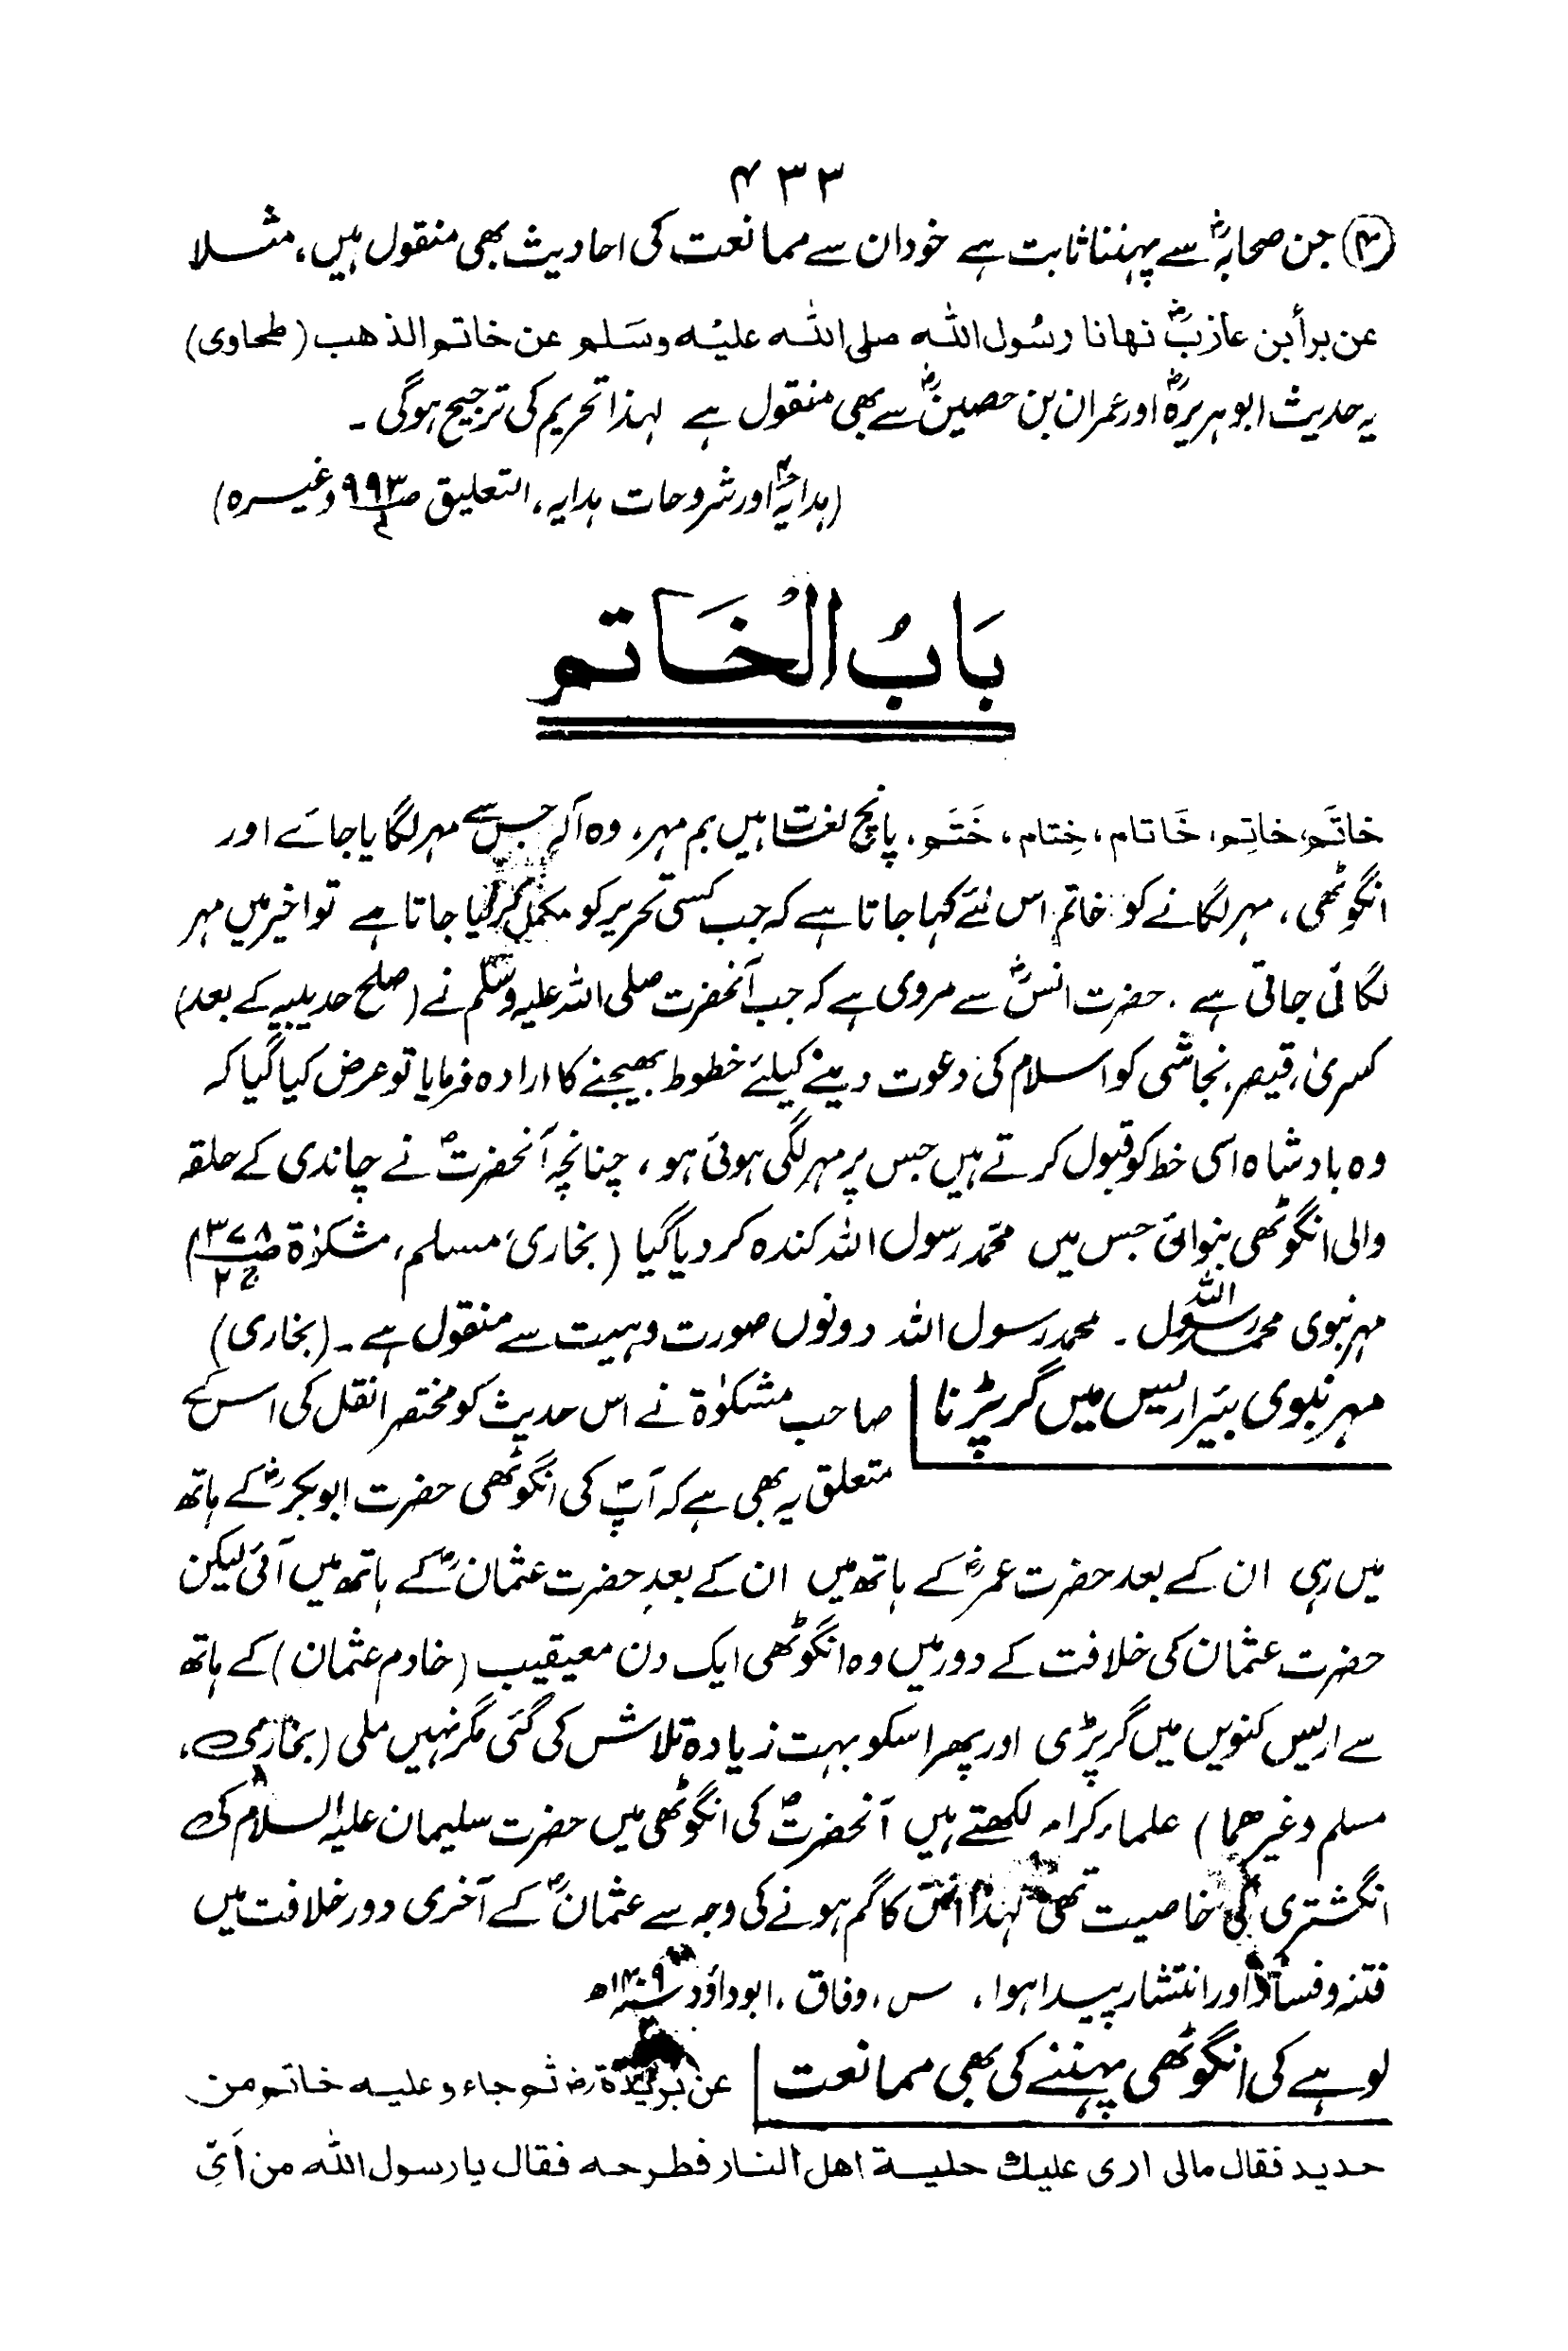 ۴۳۳
(۴) جن صحابہؓ سے پہننا ثابت ہے خود ان سے ممانعت کی احادیث بھی منقول ہیں، مثلا
عن برأبن عازبؓ نهانا رسُول اللّٰه صلی اللّٰه علیْه وسَلم عن خاتم الذهب (طحاوی)
یہ حدیث ابوہریرہؓ اور عمران بن حصینؓ سے بھی منقول ہے لہذا تحریم کی ترجیح ہوگی ۔
(ہدایہ اور شروحات ہدایہ، التعلیق ص۹۹۳ ج۴ وغیرہ)
بَابُ الْخَاتم
خاتَم، خاتِم، خَاتام، خِتام، خَتَم، پانچ لغت ہیں بم مہر، وہ آلہ جس سے مہر لگایا جائے اور
انگوٹھی، مہر لگانے کو خاتم اس لئے کہا جاتا ہے کہ جب کسی تحریر کو مکمل کر لیا جاتا ہے تو اخیر میں مہر
لگائی جاتی ہے ، حضرت انسؓ سے مروی ہے کہ جب آنحضرت صلی اللہ علیہ وسلم نے (صلح حدیبیہ کے بعد)
کسریٰ، قیصر، نجاشی کو اسلام کی دعوت دینے کیلئے خطوط بھیجنے کا ارادہ فرمایا تو عرض کیا گیا کہ
وہ بادشاہ اسی خط کو قبول کرتے ہیں جس پر مہر لگی ہوئی ہو ، چنانچہ آنحضرتؐ نے چاندی کے حلقہ
والی انگوٹھی بنوائی جس میں محمد رسول اللہ کندہ کر دیا گیا (بخاری، مسلم، مشکوٰۃ ص۳۷۸ ج۲)
مہر نبوی محمد رسول اللہ ۔ محمد رسول اللہ دونوں صورت وہیت سے منقول ہے ۔ (بخاری)
مہر نبوی بئر اریس میں گر پڑنا صاحب مشکوٰۃ نے اس حدیث کو مختصرا نقل کی اس کے
متعلق یہ بھی ہے کہ آپؐ کی انگوٹھی حضرت ابوبکرؓ کے ہاتھ
میں رہی ان کے بعد حضرت عمرؓ کے ہاتھ میں ان کے بعد حضرت عثمانؓ کے ہاتھ میں آئی لیکن
حضرت عثمان کی خلافت کے دور میں وہ انگوٹھی ایک دن معیقیب (خادم عثمان) کے ہاتھ
سے اریس کنویں میں گر پڑی اور پھر اسکو بہت زیادہ تلاش کی گئی مگر نہیں ملی (بخاری،
مسلم وغیرھما) علماء کرام لکھتے ہیں آنحضرتؐ کی انگوٹھی میں حضرت سلیمان علیہ السلام کی
انگشتری کی خاصیت تھی لہذا اس کا گم ہونے کی وجہ سے عثمانؓ کے آخری دور خلافت میں
فتنہ وفساد اور انتشار پیدا ہوا، س، وفاق، ابوداؤد سنہ۱۴۰۹ھ
لوہے کی انگوٹھی پہننے کی بھی ممانعت عن بریدةؓ ثم جاء وعلیه خاتم من
حدید فقال مالی اری علیك حلیة اهل النار فطرحه فقال یارسول اللّٰه من اَیّ